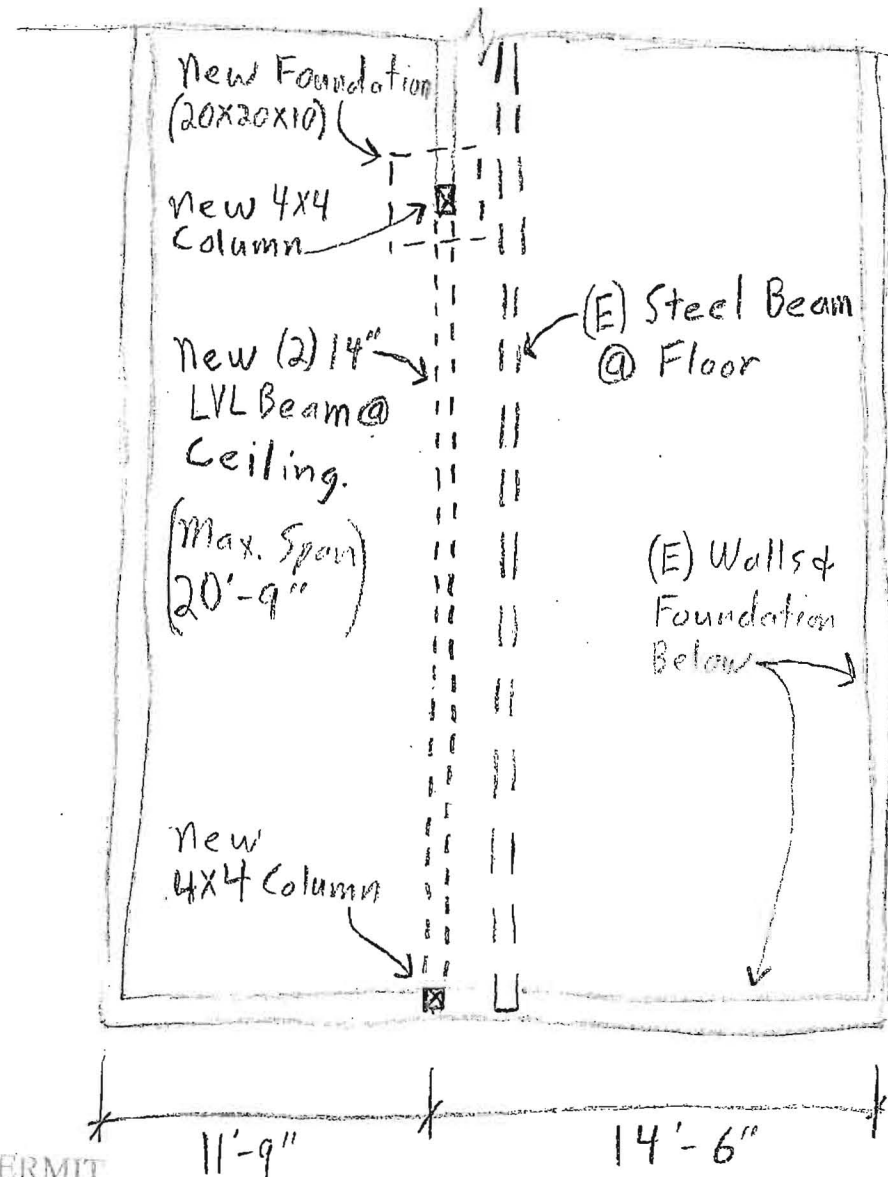 New Foundation
(20X20X10)
New 4X4
Column
New (2) 14"
LVL Beam @
Ceiling.
(Max. Span
20'-9")
(E) Steel Beam
@ Floor
(E) Walls &
Foundation
Below
New
4X4 Column
11'-9"
14'-6"
ERMIT